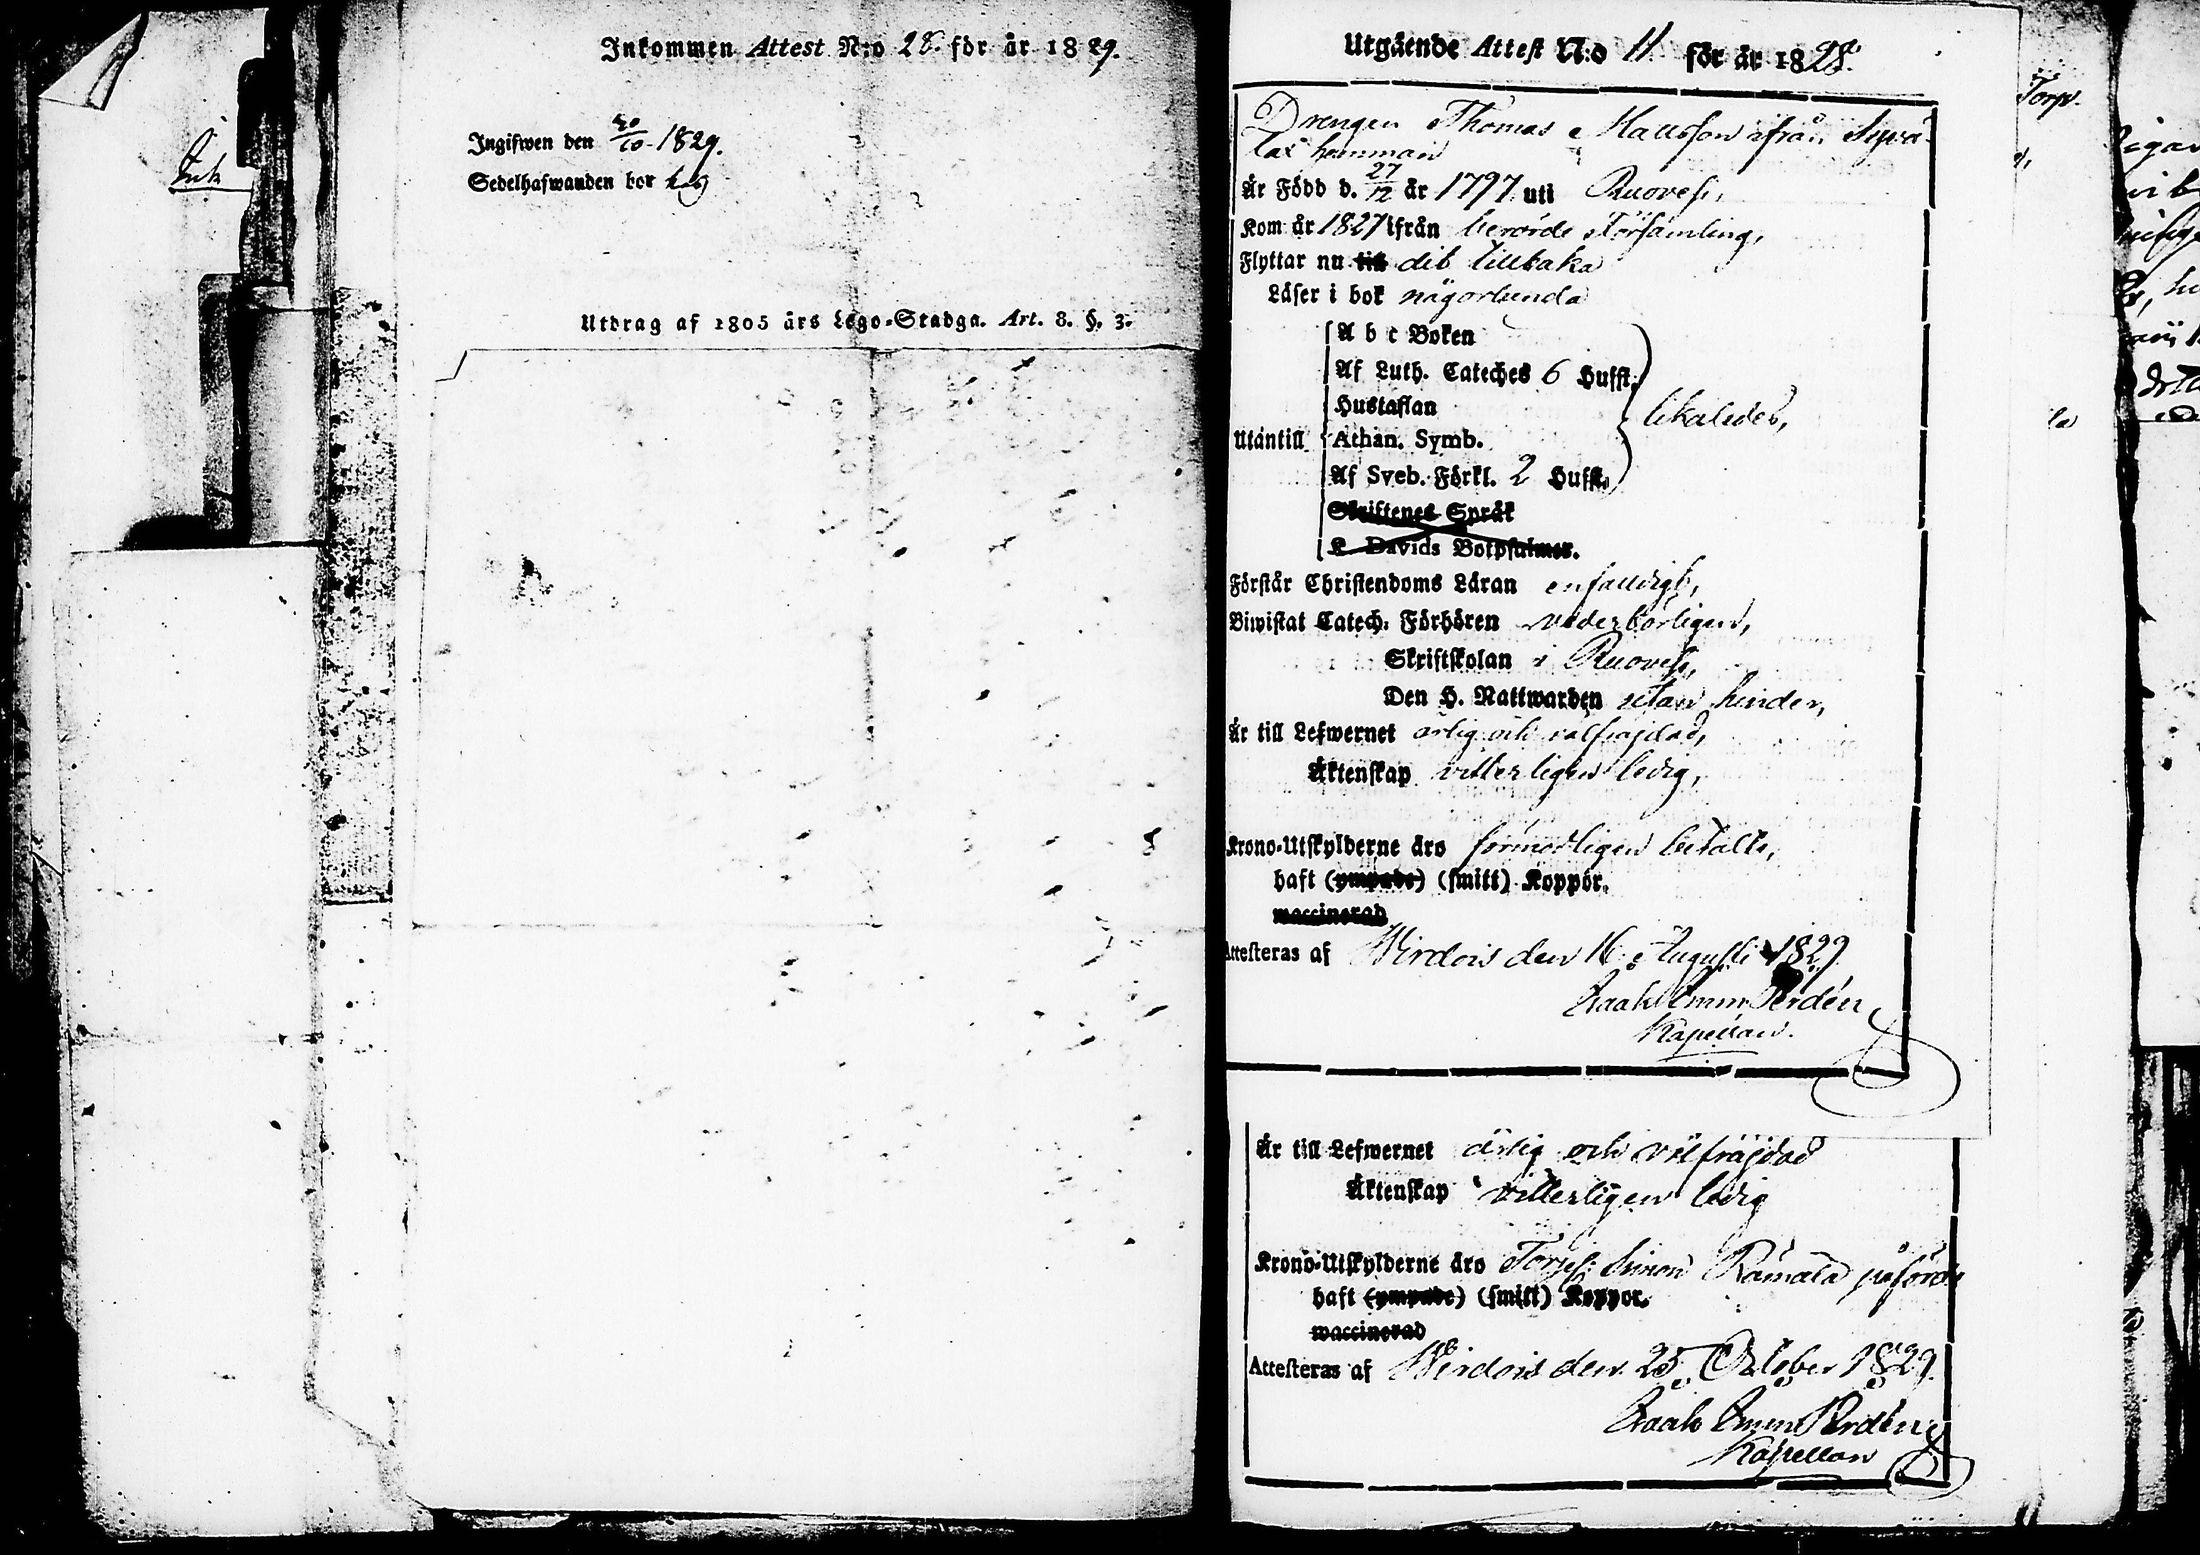 Inkommen Attest N:o 28. för år 1829.
Ingifwen den 20/10 1829.
Sedelhafwanden bor hos
Utdrag af 1805 års Lego-Stadga. Art. 8. §. 3.
Utgående Attest N:o 11. för år 1828.
Drengen Thomas Mattsson ifrån
lax hemman
Är Född d. 27/12 år 1797. uti Ruovesi,
Kom år 1827 ifrån berörde Församling,
Flyttar nu till dit tillbaka
Läser i bok någorlunda
A b c Boken
Af Luth. Cateches 6 Hufst.
Hustaflan
likaledes,
Utantill Athan. Symb.
Af Sveb. Förkl. 2 Hufst.
Skriftenes Språk
K. Davids Botpsalmer.
Förstår Christendoms Läran enfaldigt,
Biwistat Catech. Förhören vederbörligen,
Skriftskolan i Ruovesi,
Den H. Nattwarden utan hinder,
Är till Lefwernet ärlig och välfräjdad,
Äktenskap vitterligen ledig,
Krono-Utskylderne äro förmodligen betalte,
haft (ympade) (smitt) Koppor.
waccinerad
Attesteras af Wirdois den 16 Augusti 1829.
Isaak Emm. Perdén
Kapellan.
Torp.
Är till Lefwernet ärlig och välfräjdad
Äktenskap vitterligen ledig
Krono-Utskylderne äro Torp. Simon Rämälä påförde
haft (ympade) (smitt) Koppor.
waccinerad
Attesteras af Wirdois den 25. October 1829.
Isaak Emm. Perdén
Kapellan